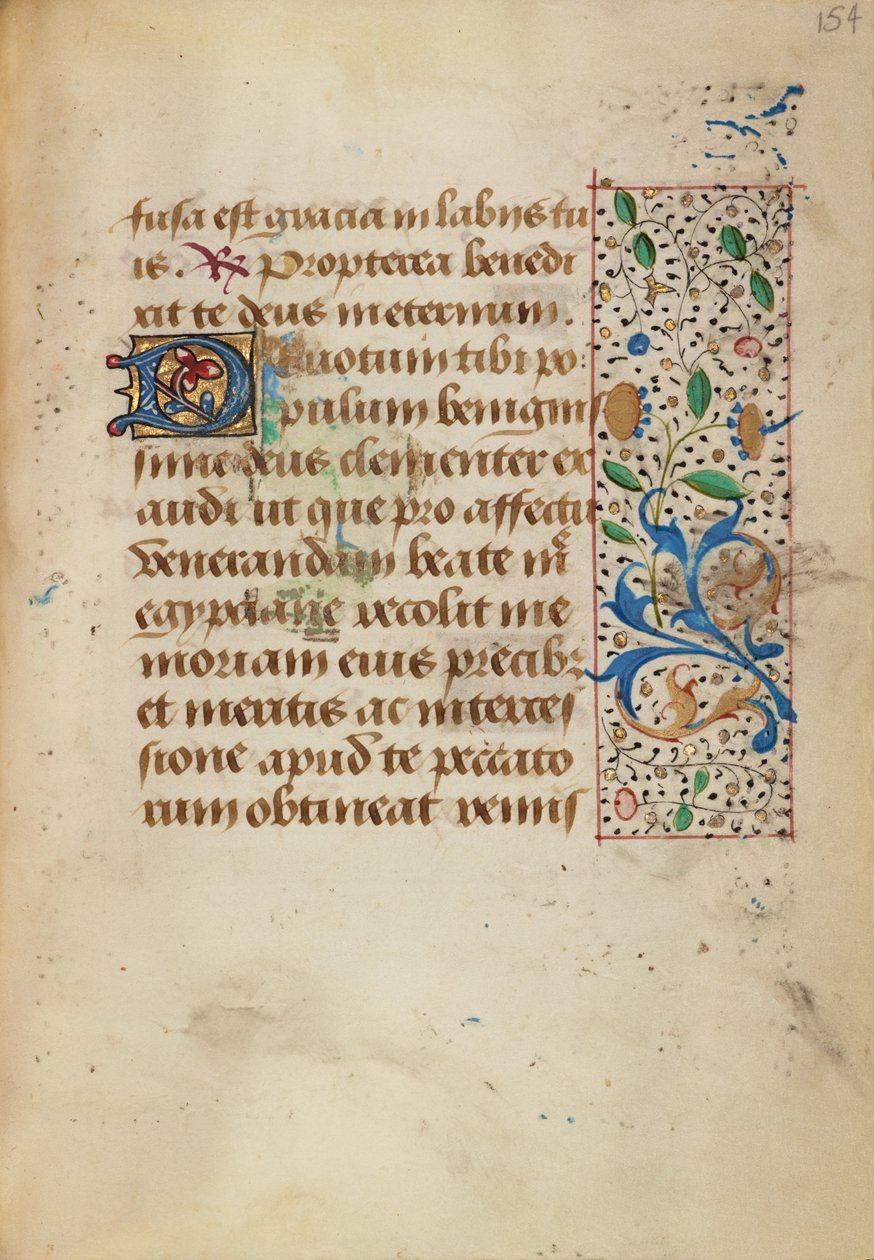 154
fusa est gracia in labijs tu
is. R Propterea benedi
xit te deus in eternum.
Deuotum tibi po
pulum benignis
sime deus clementer ex
audi ut que pro affectu
venerandam beate me
egypciane recolit me
moriam eius precibz
et meritis ac interces
sione apud te peccato
rum obtineat venus